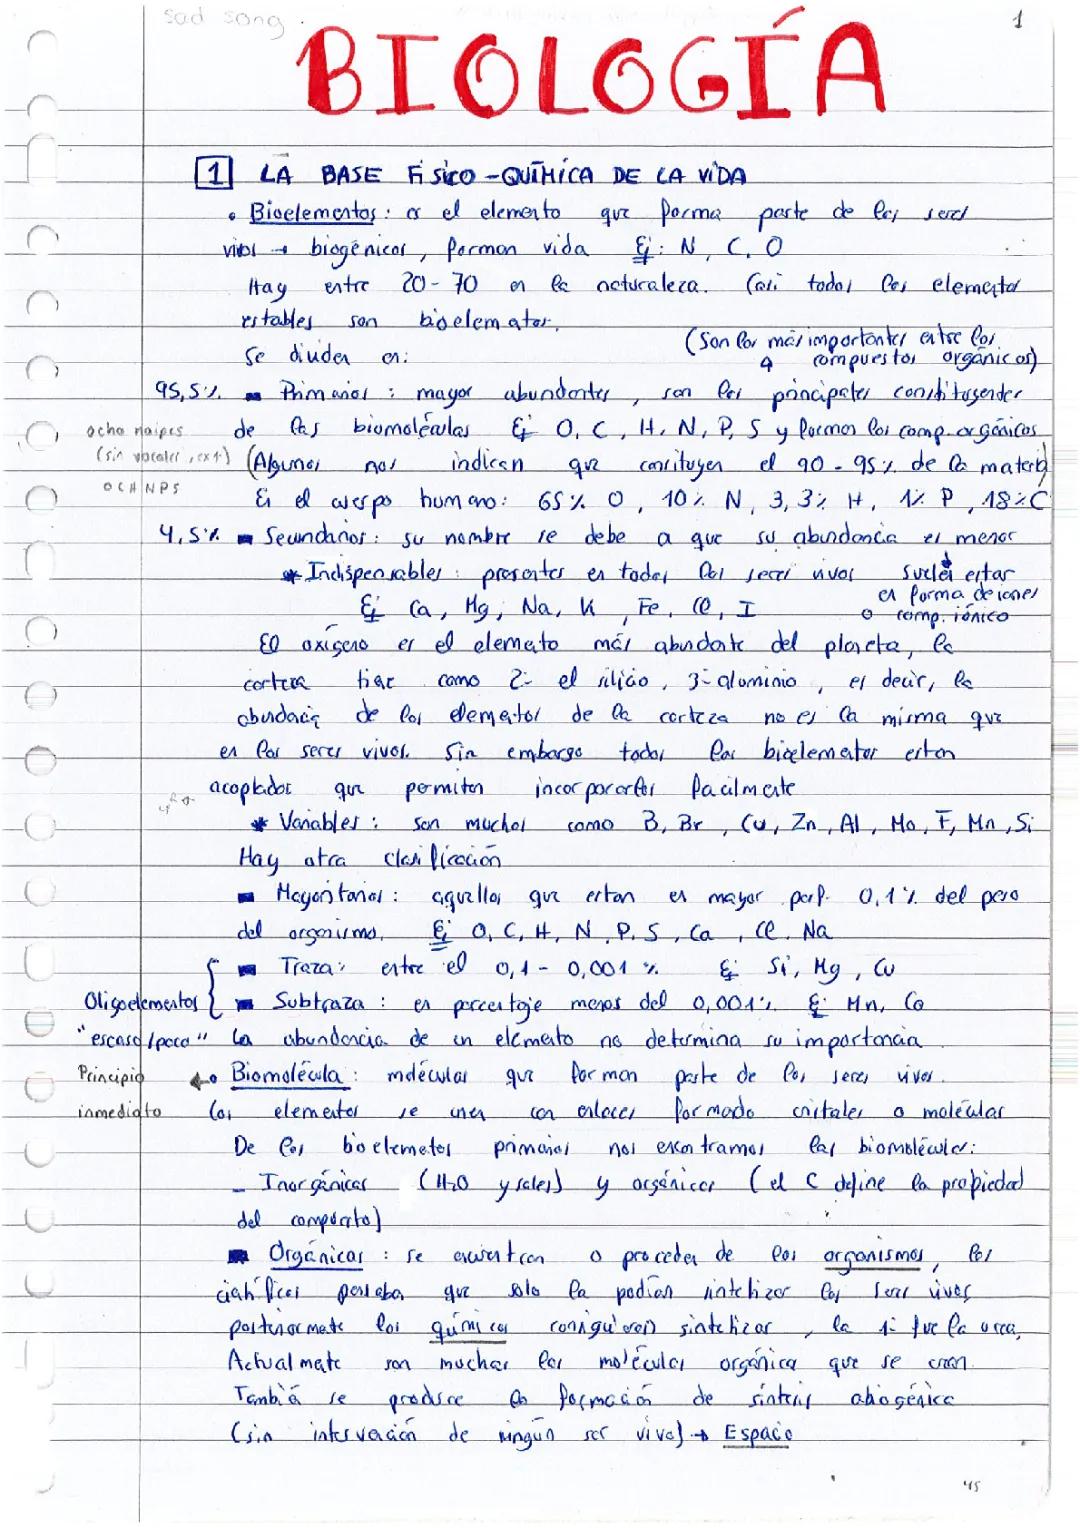 sad song
1
BIOLOGÍA
1 LA BASE FÍSICO-QUÍMICA DE LA VIDA
• Bioelementos: es el elemento que forma parte de los seres
vivos → biogénicos, forman vida Ej: N, C, O
Hay entre 20-70 en la naturaleza. Casi todos los elementos
estables son bioelementos.
(Son los más importantes entre los
Se dividen en: compuestos orgánicos)
95,5% Primarios: mayor abundantes, son los principales constituyentes
de las biomoléculas Ej O, C, H, N, P, S y forman los comp. orgánicos
ocho naipes
(sin vocales, ext)
OCHNPS
(Algunos nos indican que constituyen el 90-95% de la materia)
Ej el cuerpo humano: 65% O, 10% N, 3,3% H, 1% P, 18% C
4,5% Secundarios: su nombre se debe a que su abundancia es menor
* Indispensables: presentes en todos los seres vivos Suelen estar
en forma de iones
Ej Ca, Mg, Na, K, Fe, Cl, I o comp. iónico
El oxígeno es el elemento más abundante del planeta, la
corteza tiene como 2º el silicio, 3º aluminio, es decir, la
abundacia de los elementos de la corteza no es la misma que
en los seres vivos. Sin embargo todos los bioelementos estan
acoplados que permiten incorporarlos facilmente
* Variables: son muchos como B, Br, Cu, Zn, Al, Mo, F, Mn, Si
Hay otra clasificación
Mayoritarios: aquellos que estan en mayor porp. 0,1% del peso
del organismo, Ej O, C, H, N, P, S, Ca, Cl, Na
Traza: entre el 0,1 - 0,001 % Ej Si, Mg, Cu
Oligoelementos Subtraza: en porcentaje menos del 0,001% Ej: Mn, Co
"escaso/poco" La abundancia de un elemento no determina su importancia
Principio ← • Biomolécula: moléculas que forman parte de los seres vivos.
inmediato Los elementos se unen con enlaces formado cristales o moléculas
De los bioelemetos primarios nos encontramos las biomoléculas:
- Inorgánicas (H2O y sales) y orgánicas (el C define la propiedad
del compuesto)
Orgánicas: se encuentran o proceden de los organismos, los
cientificos pensaban que solo la podían sintetizar los seres vivos
posteriormente los químicos consiguieron sintetizar, la 1ª fue la urea,
Actualmente son muchas las moléculas orgánica que se crean
También se produce la formación de síntesis abiogénica
(sin intervención de ningún ser vivo) → Espacio
45